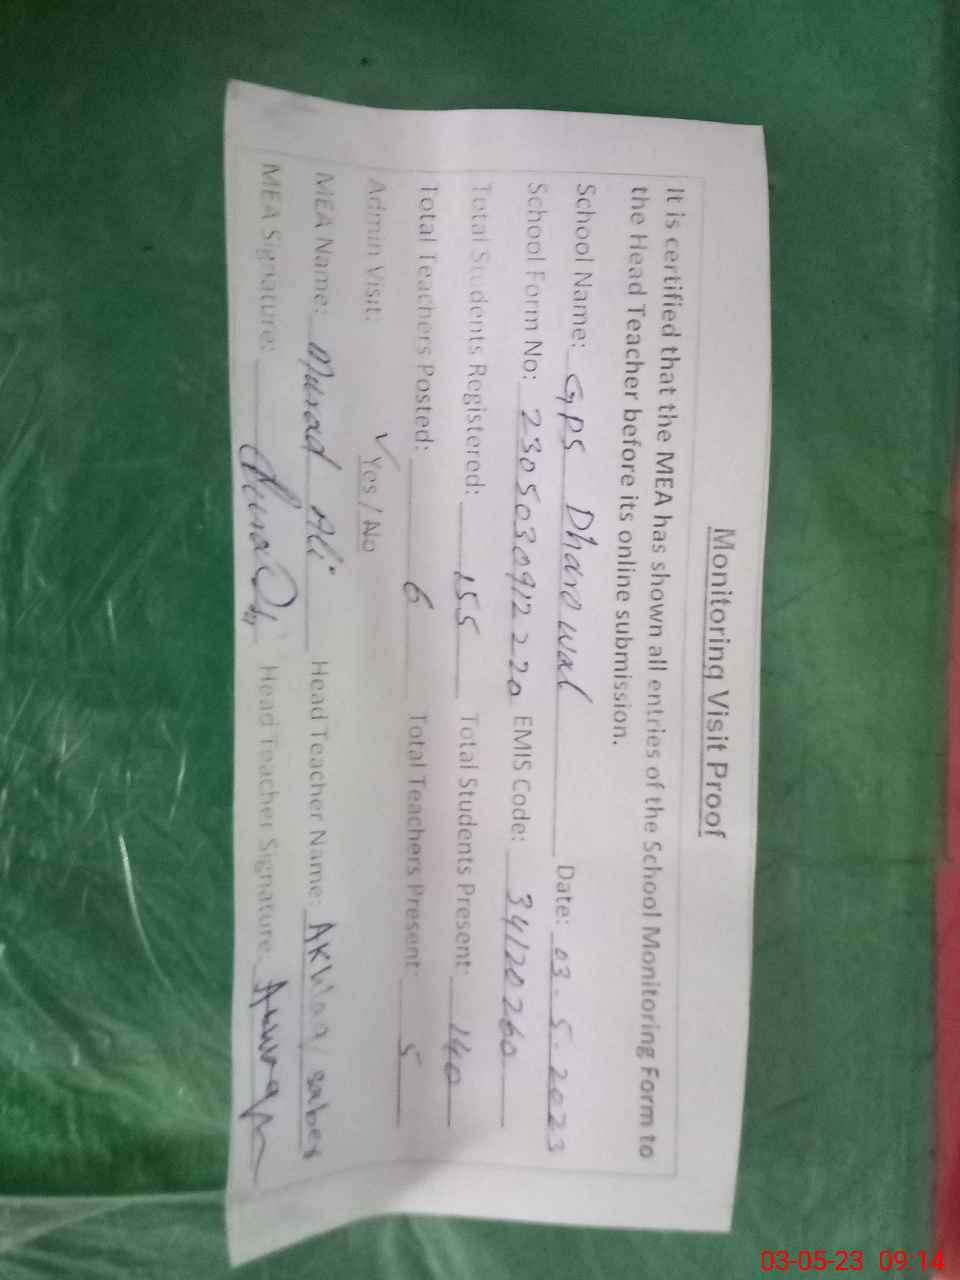 Monitoring Visit Proof
It is certified that the MEA has shown all entries of the School Monitoring Form to
the Head Teacher before its online submission.
School Name: GPS Dharowal Date: 03-5-2023
School Form No: 2305030912220 EMIS Code: 34120260
Total Students Registered: 155 Total Students Present: 140
Total Teachers Posted: 6 Total Teachers Present: 5
Admin Visit: ✓ Yes / No
MEA Name: Murad Ali Head Teacher Name:
MEA Signature: Head Teacher Signature:
03-05-23 09:14